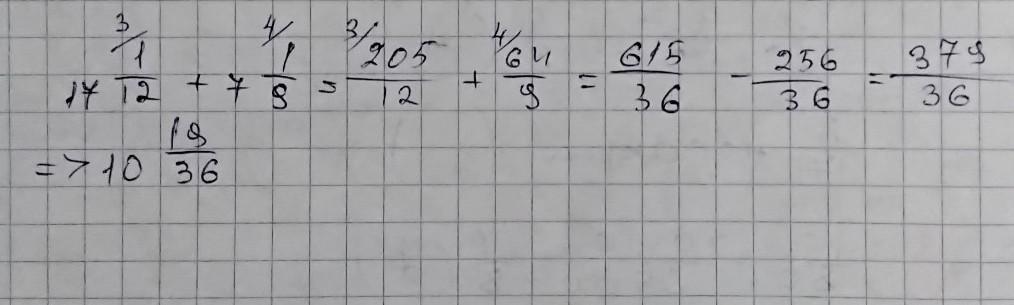 17 3/ 1/12 + 7 4/ 1/9 = 3/ 205/12 + 4/ 64/9 = 615/36 - 256/36 = 379/36
=> 10 19/36